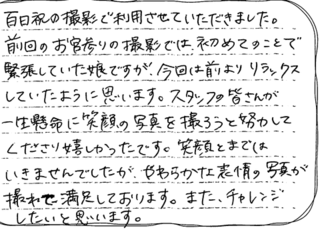 百日祝の撮影で利用させていただきました。
前回のお宮参りの撮影では、初めてのことで
緊張していた娘ですが、今回は前よりリラックス
していたように思います。スタッフの皆さんが
一生懸命に笑顔の写真を撮ろうと努力して
くださり嬉しかったです。笑顔とまでは
いきませんでしたが、やわらかな表情の写真が
撮れて満足しております。また、チャレンジ
したいと思います。